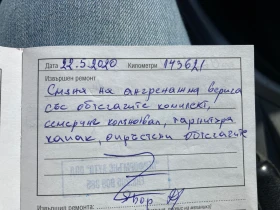 Дата 22.5.2020 Километри 143621
Извършен ремонт
Смяна на ангренажна верига
със обтегачите комплект,
семеринг колянов вал, гарнитура
капак, пръстени обтегачите
Извършил ремонта: